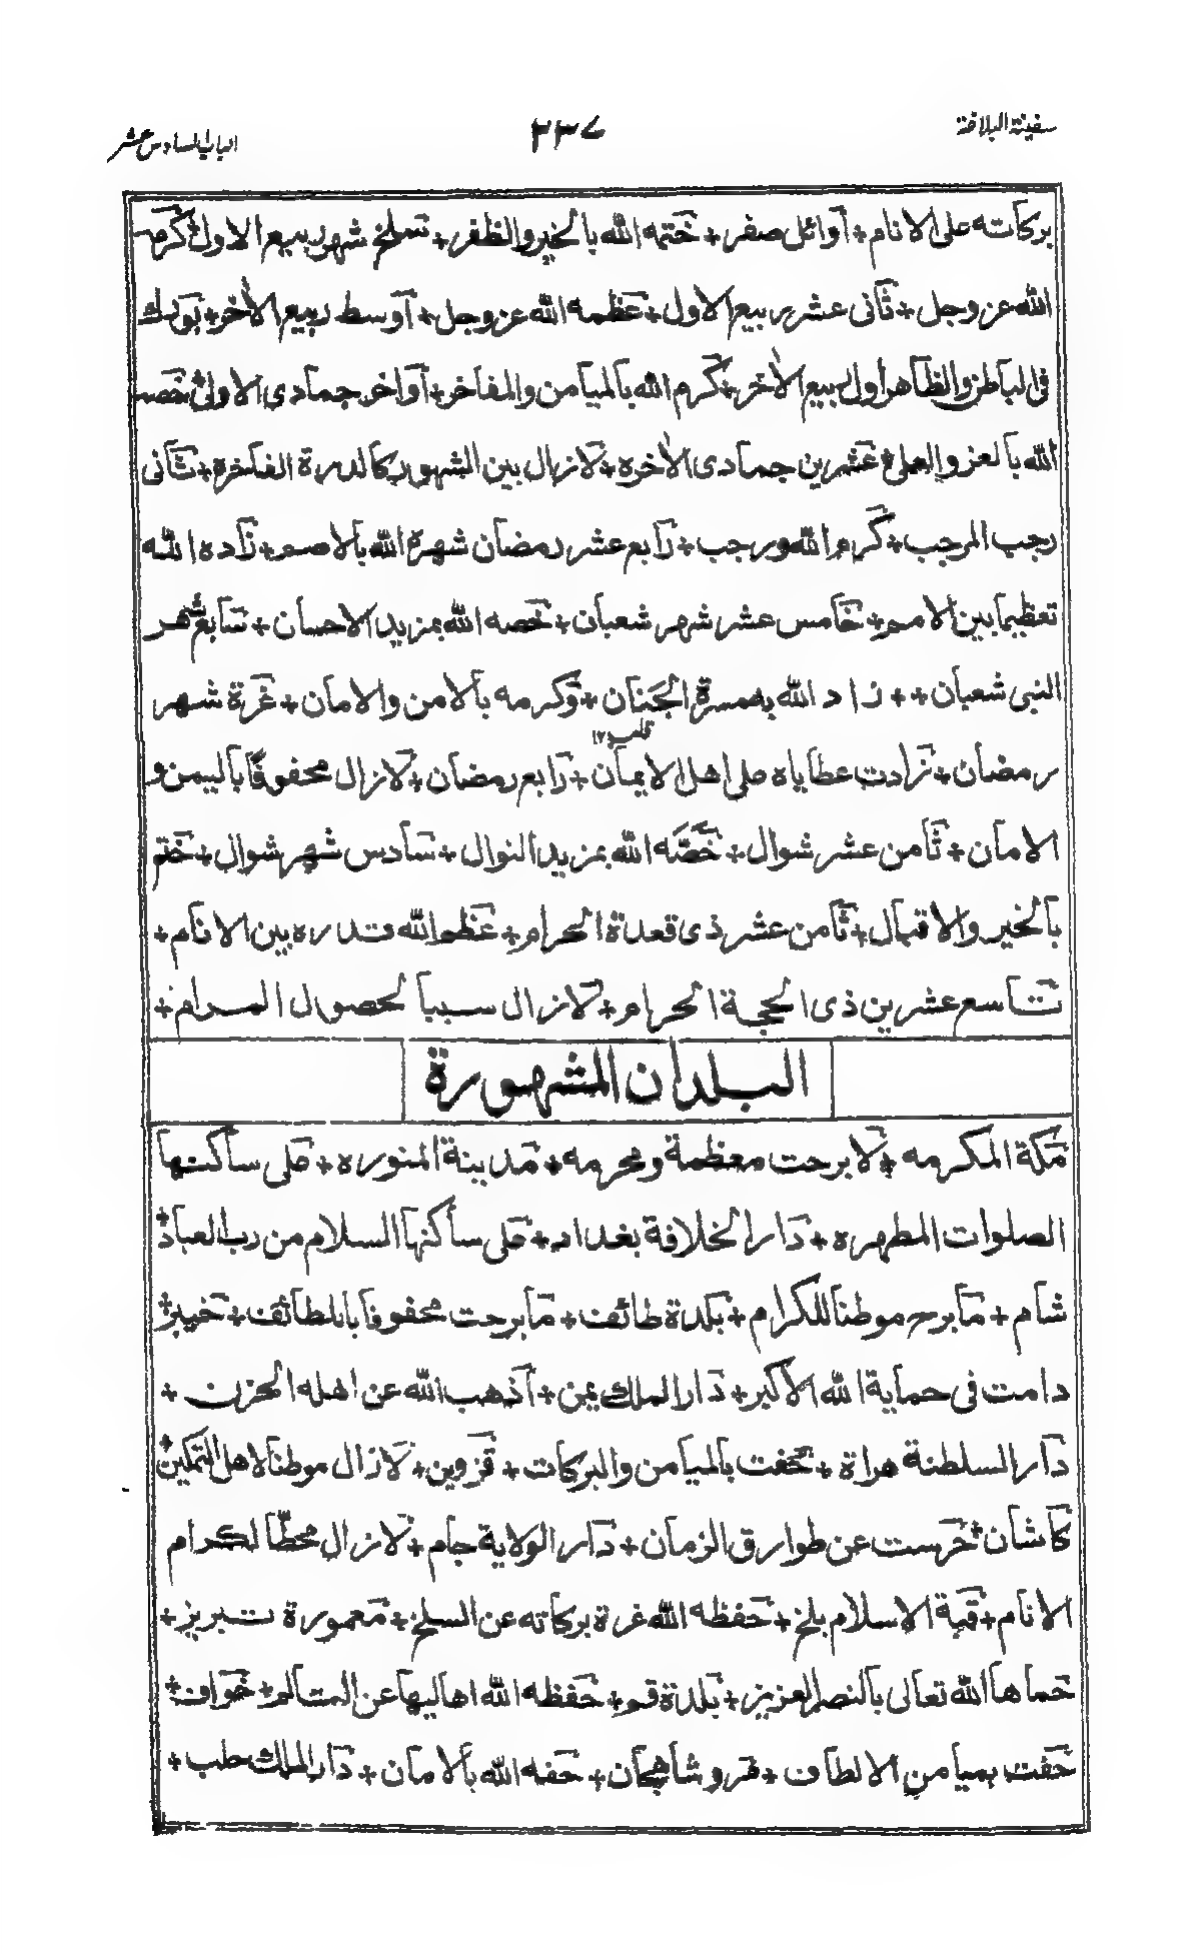 سفينة البلاغة
٣٣٧
الباب السادس عشر
بركاته على الانام + اوائل صفر + ختمه الله بالخير والظفر + سلخ شهر ربيع الاول + كرمه
الله عز وجل + ثانى عشر ربيع الاول + عظمه الله عز وجل + اوسط ربيع الاخر + بورك
فى الباطن والظاهر اول ربيع الاخر + كرم الله بالميامن والمفاخر + اواخر جمادى الاولى + خصه
الله بالعز والعلى + عشرين جمادى الاخره + لازال بين الشهور كالدرة الفاخرة + ثانى
رجب المرجب + كرم الله ورجب + رابع عشر رمضان شهرة الله بالاصم + زاده الله
تعظيما بين الامم + خامس عشر شهر شعبان + خصه الله بمزيد الاحسان + سابع شهر
النبى شعبان + + زاد الله به مسرة الجنان + وكرمه بالامن والامان + غرة شهر
قلب ١٢
رمضان + زادت عطاياه على اهل الايمان + رابع رمضان + لازال محفوفا باليمن و
الامان + ثامن عشر شوال + خصه الله بمزيد النوال + سادس شهر شوال + ختم
بالخير والاقبال + ثامن عشر ذى قعدة الحرام + عظم الله قدره بين الانام +
تاسع عشرين ذى الحجة الحرام + لازال سببا لحصول المرام +
البلدان المشهورة
مكة المكرمه + لا برحت معظمة ومحرمه + مدينة المنوره + على ساكنها
الصلوات المطهره + دار الخلافة بغداد + على ساكنها السلام من رب العباد +
شام + ما برح موطنا للكرام + بلدة طائف + ما برحت محفوفا باللطائف + خيبر +
دامت فى حماية الله الاكبر + دار الملك يمن + اذهب الله عن اهله الحزن +
دار السلطنة هراة + حفت بالميامن والبركات + قزوين + لازال موطنا لاهل التمكين +
كاشان + حرست عن طوارق الزمان + دار الولاية جام + لازال محطا لكرام
الانام + قبة الاسلام بلخ + حفظه الله غرة بركاته عن السلخ + معمورة تبريز +
حماها الله تعالى بالنصر العزيز + بلدة قم + حفظه الله اهاليها عن التالم + خواف +
حفت بميامن الالطاف + مرو شاهجان + حفه الله بالامان + دار الملك حلب +